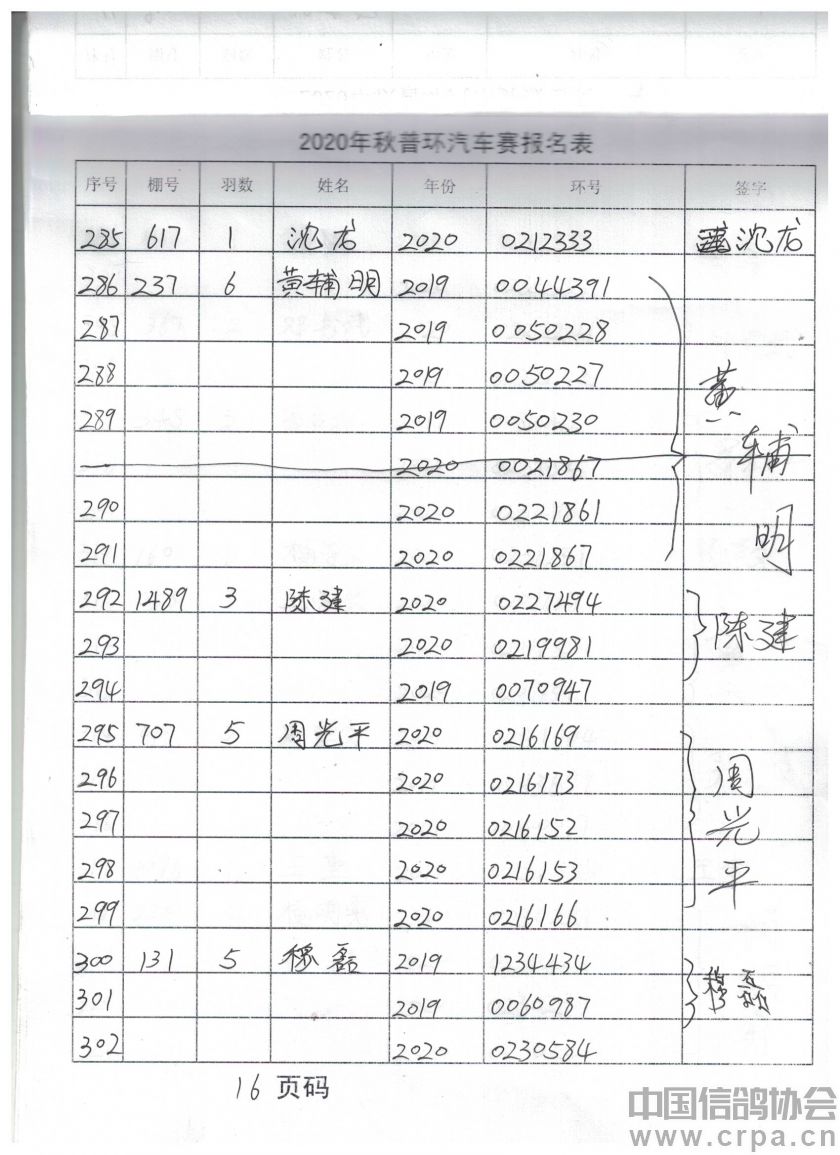 2020年秋普环汽车赛报名表
序号 棚号 羽数 姓名 年份 环号 签字
285 617 1 沈龙 2020 0212333 沈龙
286 237 6 黄辅明 2019 0044391
287 2019 0050228
288 2019 0050227
289 2019 0050230
2020 0021867
290 2020 0221861
291 2020 0221867
黄辅明
292 1489 3 陈建 2020 0227494
293 2020 0219981
294 2019 0070947
陈建
295 707 5 周光平 2020 0216169
296 2020 0216173
297 2020 0216152
298 2020 0216153
299 2020 0216166
周光平
300 131 5 穆磊 2019 1234434
301 2019 0060987
302 2020 0230584
穆磊
16 页码
中国信鸽协会
www.crpa.cn